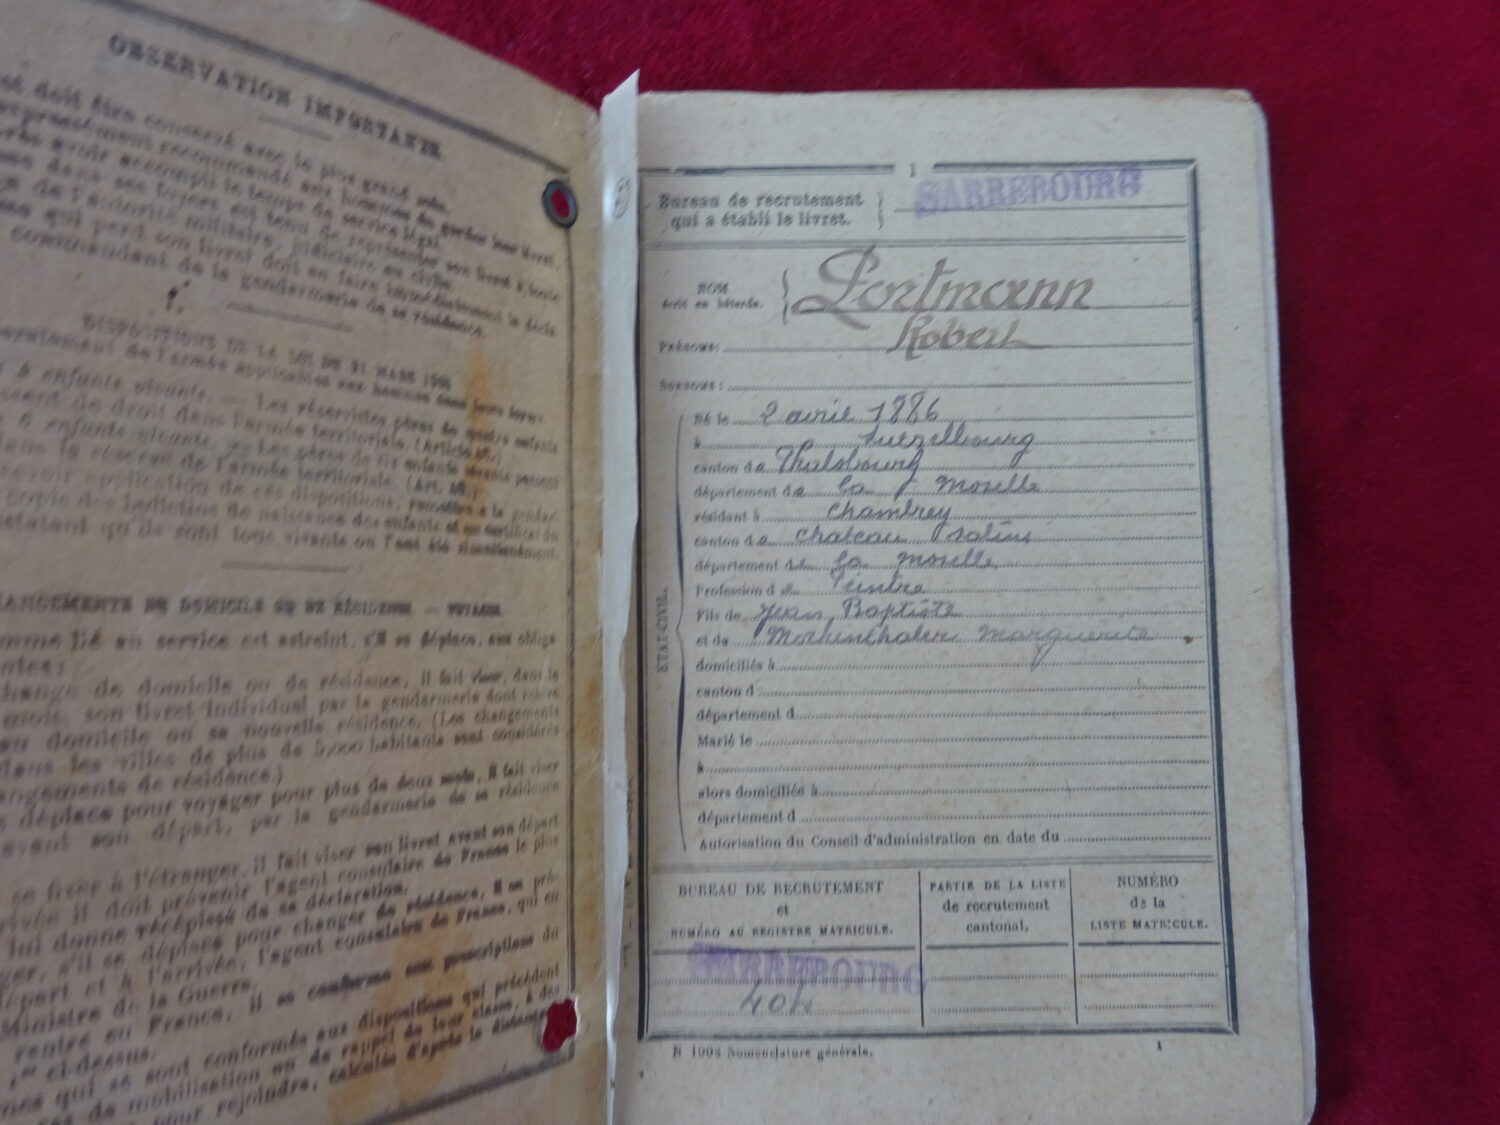 OBSERVATION IMPORTANTE.
doit être conservé avec le plus grand soin.
expressément recommandé aux hommes de garder leur livret,
après avoir accompli le temps de service légal.
dans ses foyers est tenu de représenter son livret à toute
de l'autorité militaire, judiciaire ou civile.
qui perd son livret doit en faire immédiatement la décla-
commandant de la gendarmerie de sa résidence.
DISPOSITIONS DE LA LOI DU 21 MARS 1905
recrutement de l'armée applicables aux hommes dans leurs foyers.
à enfants vivants. — Les réservistes pères de quatre enfants
de droit dans l'armée territoriale. (Article
6 enfants vivants. — Les pères de six enfants vivants passent
dans la réserve de l'armée territoriale. (Art.
application de ces dispositions, remettre à la gendar-
copie des bulletins de naissance des enfants et un certificat du
constatant qu'ils sont tous vivants ou l'ont été simultanément.
CHANGEMENTS DE DOMICILE OU DE RÉSIDENCE. — VOYAGES.
homme lié au service est astreint, s'il se déplace, aux obliga-
change de domicile ou de résidence, il fait viser, dans le
mois, son livret individuel par la gendarmerie dont relève
domicile ou sa nouvelle résidence. (Les changements
dans les villes de plus de 5,000 habitants sont considérés
changements de résidence.)
déplace pour voyager pour plus de deux mois, il fait viser
avant son départ, par la gendarmerie de sa résidence
se fixer à l'étranger, il fait viser son livret avant son départ
arrivée il doit prévenir l'agent consulaire de France le plus
lui donne récépissé de sa déclaration.
s'il se déplace pour changer de résidence, il en pré-
départ et à l'arrivée, l'agent consulaire de France, qui en
Ministre de la Guerre.
rentre en France, il se conforme aux prescriptions du
ci-dessus.
qui se sont conformés aux dispositions qui précèdent
de mobilisation ou de rappel de leur classe, à des
pour rejoindre, calculés d'après la distance
1
Bureau de recrutement
qui a établi le livret.
SARREBOURG
NOM
écrit en bâtarde.
Portmann
Prénoms: Robert
Surnoms:
ÉTAT-CIVIL.
Né le 2 avril 1886
à Lutzelbourg
canton de Phalsbourg
département de la Moselle
résidant à Chambrey
canton de Chateau Salins
département de la Moselle
Profession de Peintre
Fils de Jean Baptiste
et de Morgenthaler Marguerite
domiciliés à
canton d
département d
Marié le
à
alors domiciliée à
département d
Autorisation du Conseil d'administration en date du
BUREAU DE RECRUTEMENT
et
NUMÉRO AU REGISTRE MATRICULE.
PARTIE DE LA LISTE
de recrutement
cantonal.
NUMÉRO
de la
LISTE MATRICULE.
SARREBOURG
404
N° 1003 Nomenclature générale.
1